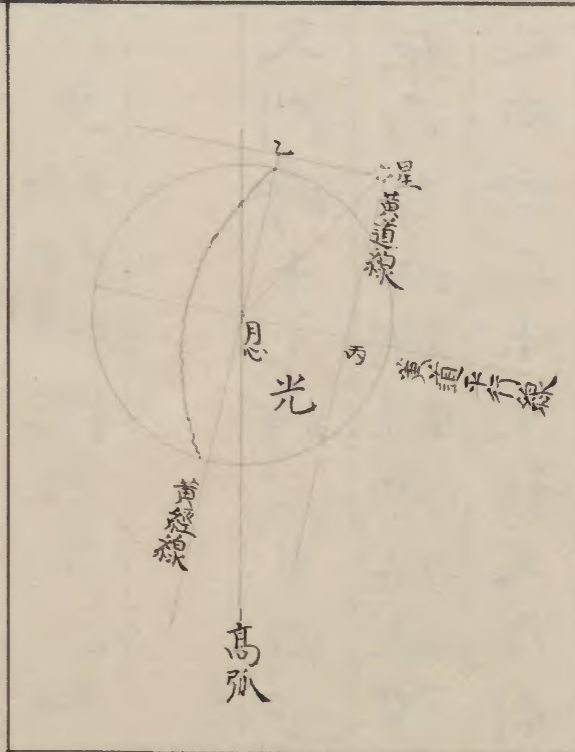 乙
星
黄道線
月心
丙
光
黄道平行線
黄經線
高弧